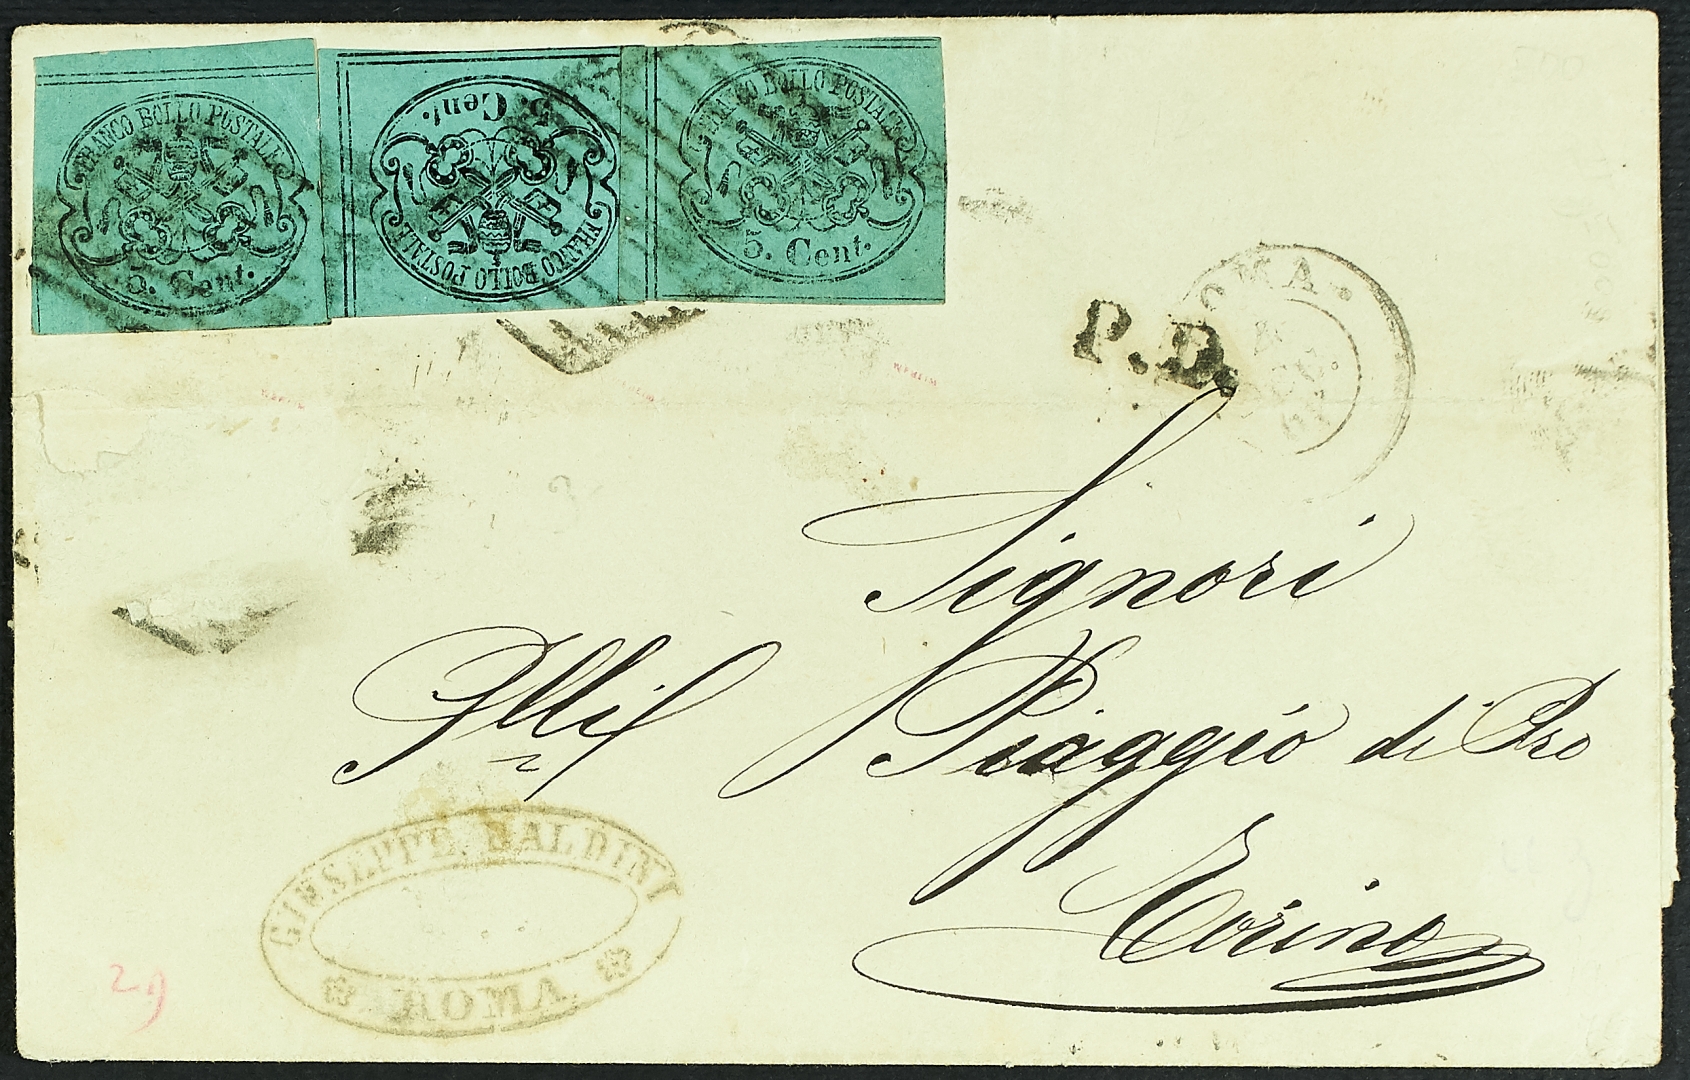 FRANCO BOLLO POSTALE
5. Cent.
5. Cent.
FRANCO BOLLO POSTALE
FRANCO BOLLO POSTALE
5. Cent.
ROMA
P.D.
Signori
Piaggio di
Torino
GIUSEPPE BALDINI
ROMA
29